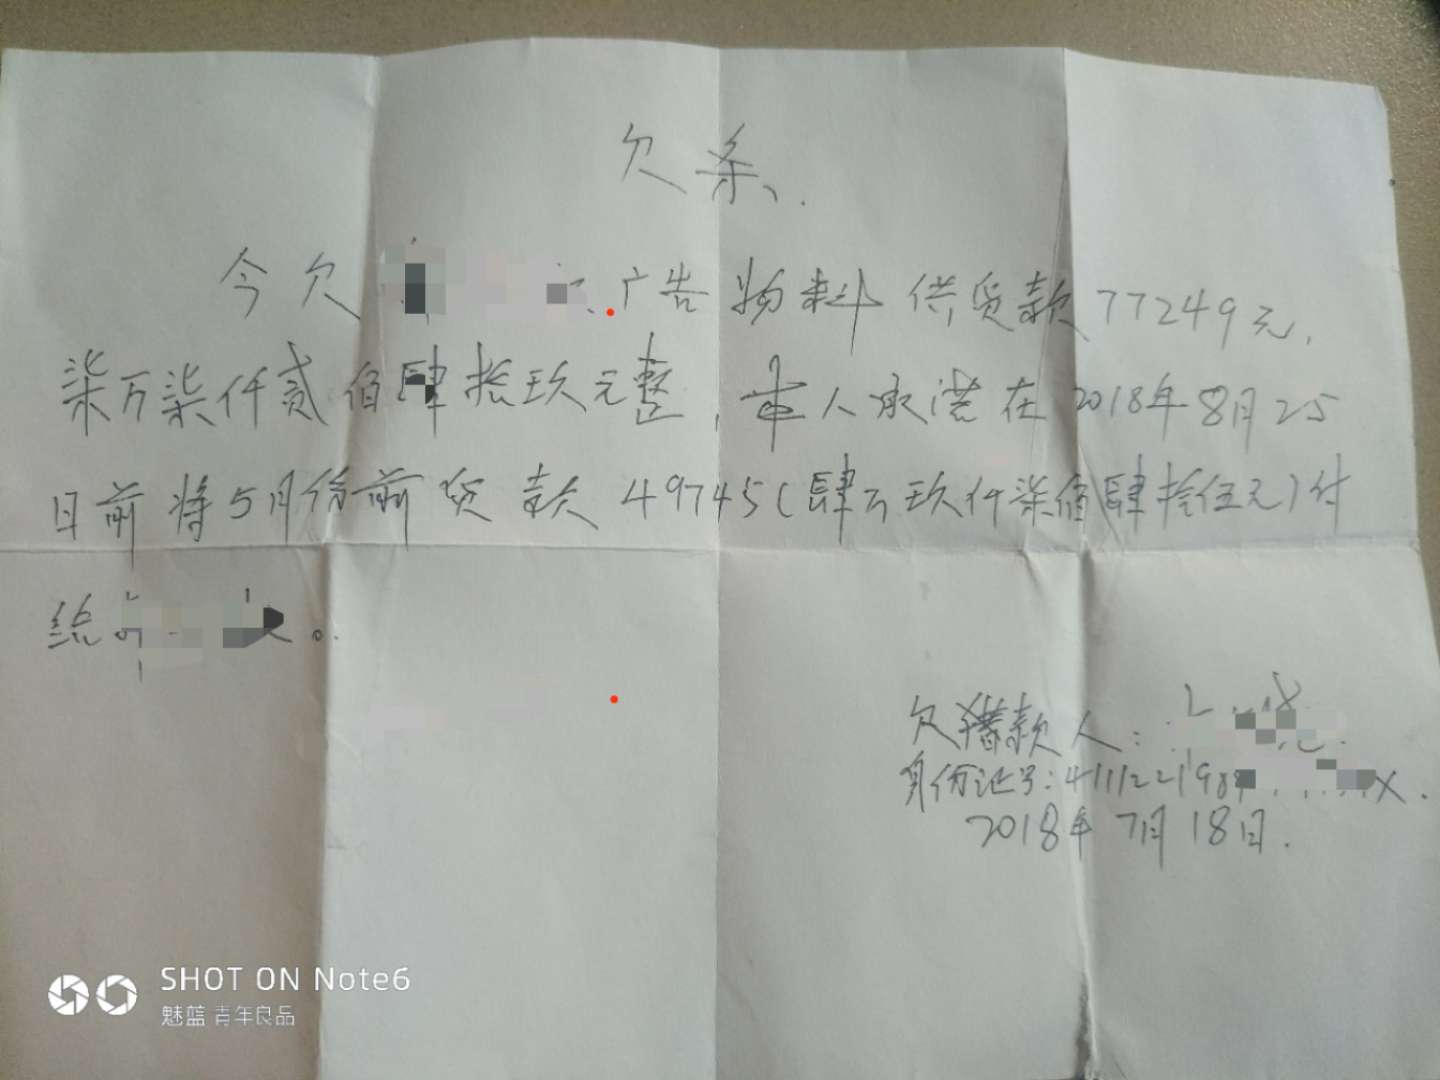 欠条.
今欠 广告物料供货款77249元,
柒万柒仟贰佰肆拾玖元整,本人承诺在2018年8月25
日前将5月份前货款49745(肆万玖仟柒佰肆拾伍元)付
给 。
欠款人:
身份证号:411122198 X.
2018年7月18日.
SHOT ON Note6
魅蓝 青年良品